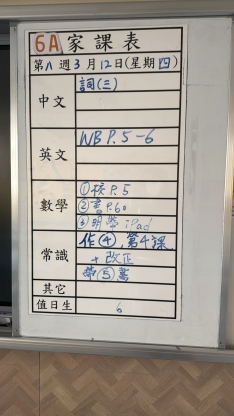 6A 家課表
第八週3月12日(星期四)
中文 詞(三)
英文 WB P.5-6
數學 ①校P.5
②書P.60
③明帶iPad
常識 作④,第4課
+改正
帶⑤書
其它
值日生 6